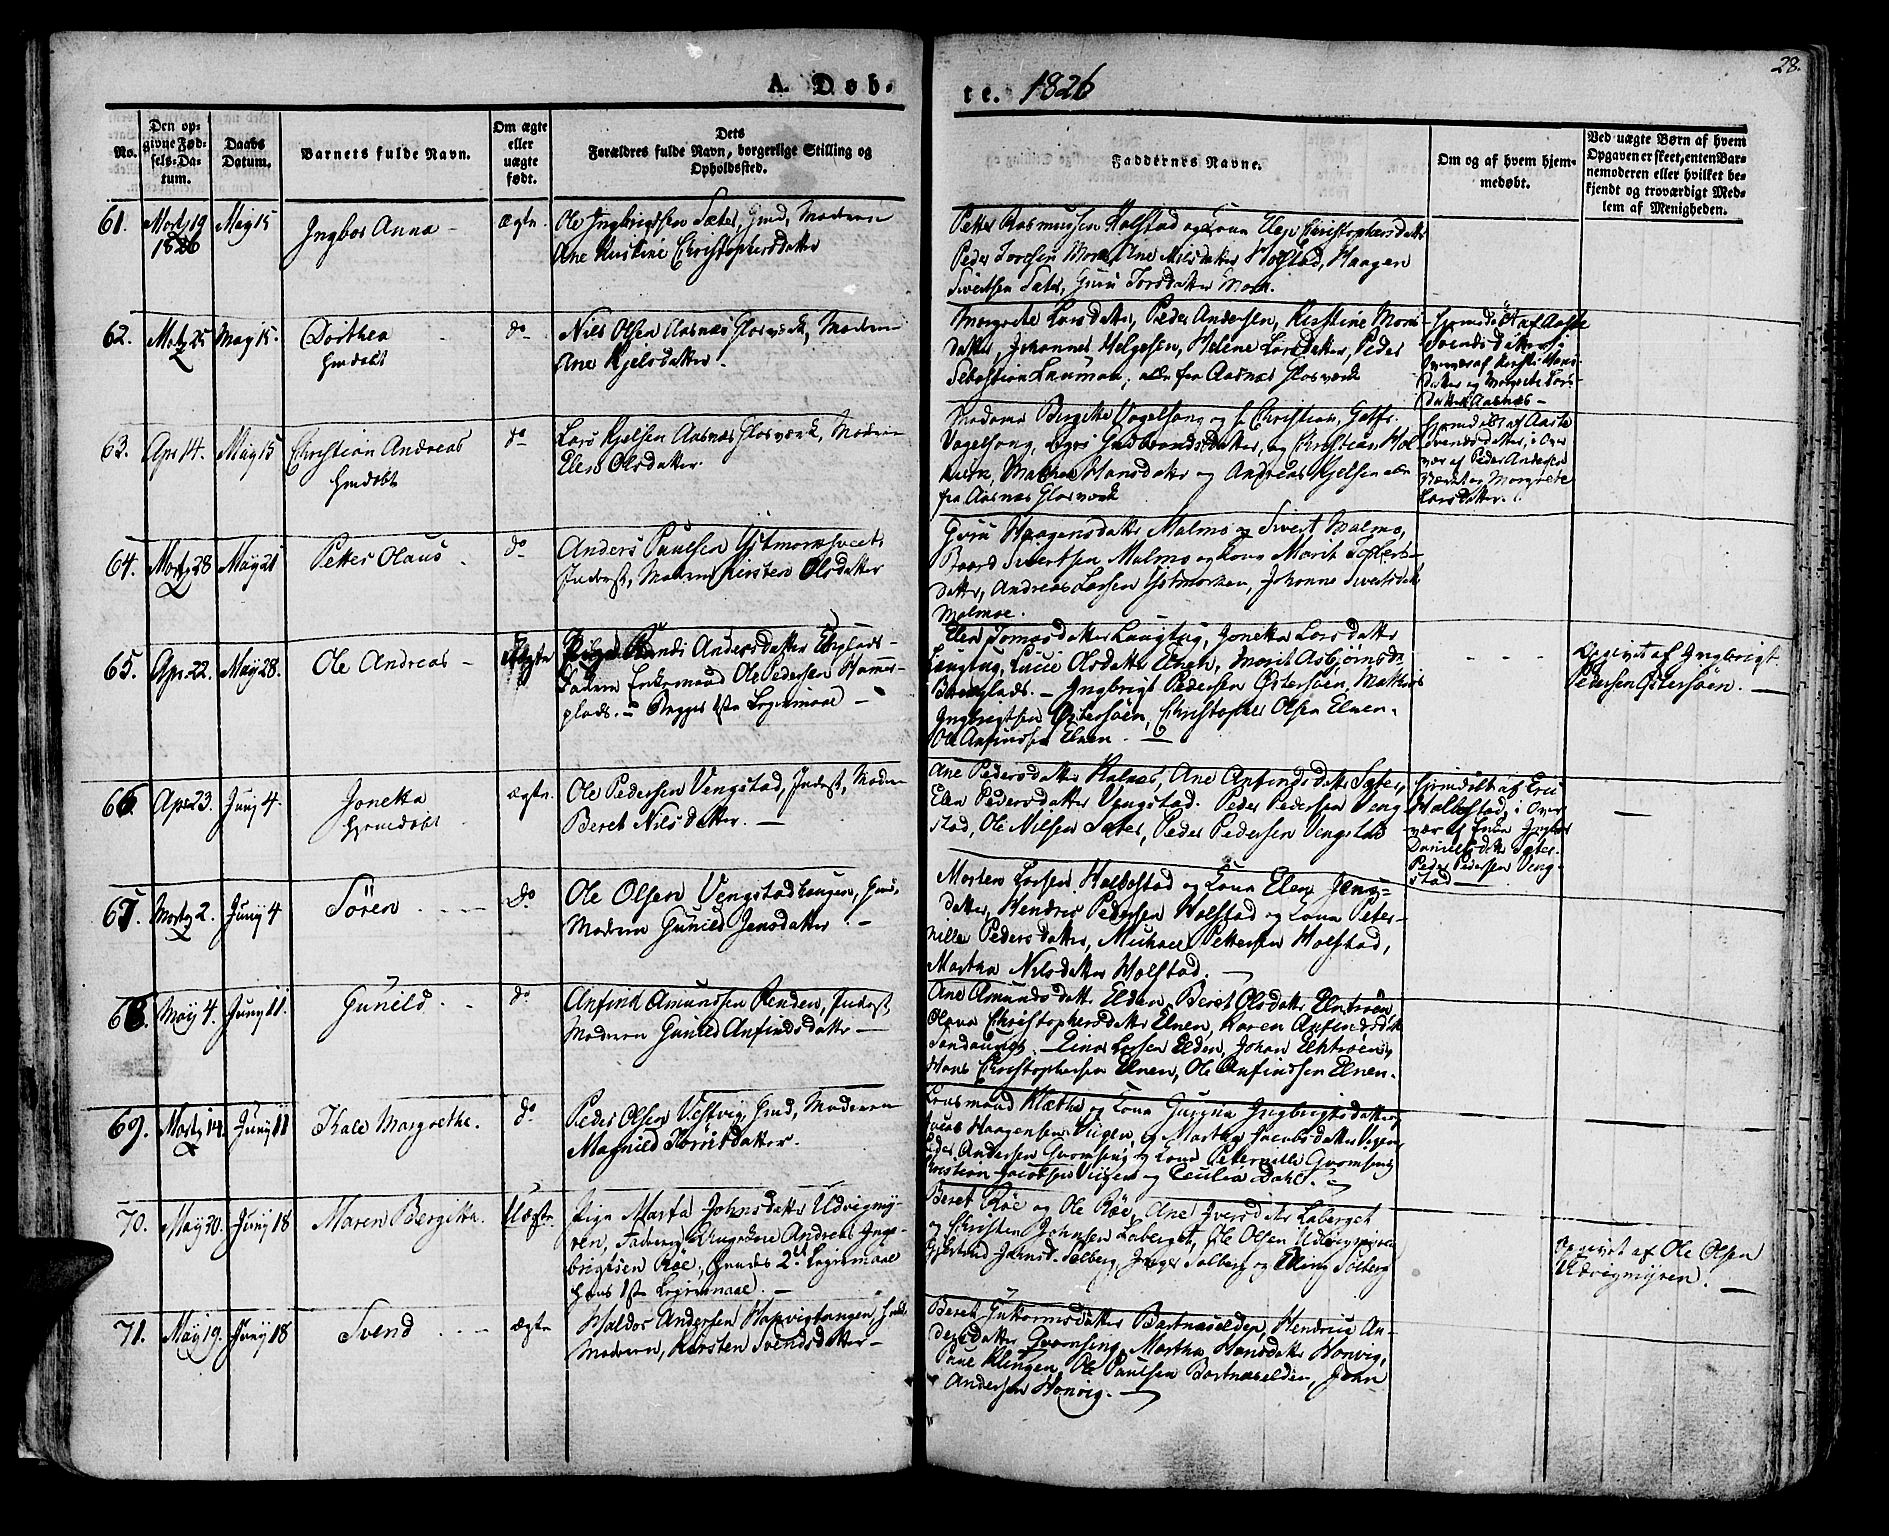 28.
A. Døb-
te. 1826
No.
Den op-
givne Fød-
sels-Da-
tum.
Daabs
Datum.
Barnets fulde Navn.
Om ægte
eller
uægte
født.
Dets
Forældres fulde Navn, borgerlige Stilling og
Opholdssted.
Faddernes Navne.
Om og af hvem hjem-
medøbt.
Ved uægte Børn af hvem
Opgaven er skeet, enten Bar-
nemoderen eller hvilket be-
kjendt og troværdigt Med-
lem af Menigheden.
61. Martz 19 May 15 Ingbor Anna - ægte Ole Ingbrigtsen Sæter, Gmd, Moderen
1826
Ane Kirstine Christophersdatter
Petter Rasmussen Holstad og Kona Elen Christophersdatter
Peder Toresen Moen, Ane Nilsdatter Holstad, Haagen
Sivertsen Sæter, Guru Torsdatter Moen.
62. Martz 25 May 15. Dorthea do Nils Olsen Aasnæs Glasværk, Moderen
hmdøbt
Ane Kjelsdatter.
Margrete Larsdatter, Peder Andersen, Kirstine
datter, Johannes Helgesen, Helene Larsdatter, Peder
Sebastian Lauman, alle fra Aasnæs Glasværk
Hjemdøbt af Aaste
Svendsdatter i
Overvær af Kirsti Hans-
datter og Margrete Lars-
datter Aasnæs -
63. Apr 14. May 15 Christian Andreas do Lars Kjelsen Aasnæs Glasværk, Moderen
hmdøbt
Elen Olsdatter.
Madame Birgitte Vogelsang og Hr Christian, Gotfr.
Vogelsang, Gudbrandsdatter, og Christian
Mathea Hansdatter og Andreas Kjelsen alle
fra Aasnæs Glasværk
Hjemdøbt af Aaste
Svendsdatter, i Over
vær af Peder Andersen
og Margrete
Larsdatter.
64. Martz 28 May 21 Petter Olaus do Anders Paulsen Ystmarksveet
Inderst, Moderen Kirsten Olsdatter
Guru Haagensdatter Malmo og Sivert Malmo,
Baard Sivertsen Malmo og Kona Marit
datter, Andreas Larsen Ystmarken, Johanna Sivertsdatter
Malmoe.
65. Apr 22. May 28. Ole Andreas - Uægte Pige Randi Andersdatter
Faderen Enkemand Ole Pedersen Hammer-
plads. - Begges 1ste Leiermaal -
Elen Tomasdatter Langtug, Jonetta Larsdatter
Langtug, Lucie Olsdatter Elnen, Marit Asbjørnsd.
- Ingbrigt Pedersen Østersøen, Mathias
Ingbrigtsen Østersøen, Christopher Olsen Elnen.
Ole Anfindsen Elnen. -
Opgivet af Ingbrigt
Pedersen Østersøen. -
66. Apr 23. Juny 4. Jonetta ægte. Ole Pedersen Vengstad, Inderst, Moderen
hjemdøbt
Beret Nilsdatter. -
Ane Pedersdatter Kalnes, Ane Anfindsdatter Sæter,
Elen Pedersdatter Vengstad. Peder Pedersen Veng
stad, Ole Nilsen Sæter, Peder Pedersen Vengstad
Hjemdøbt af Eric
Halbostad, i Over
vær af Enken Ingbor
Danielsdatter Sæter.
Peder Pedersen Veng-
stad -
67. Martz 2. Juny 4 Sören do Ole Olsen Vengstadhaugen, Gmd,
Moderen Gunild Jensdatter. -
Morten Larsen Halbostad og Kona Elen Jens-
datter, Hendric Pedersen Holstad og Kona Peter-
nille Pedersdatter, Michael Pettersen Holstad,
Martha Nilsdatter Holstad. -
68. May 4. Juny 11. Gunild do Anfind Amundsen Renden, Inderst
Moderen Gunild Anfindsdatter -
Ane Amundsdatter Elden, Beret Olsdatter Elntrøn,
Olava Christophersdatter Elnen, Karen Anfindsdatter
Einar Larsen Elden, Johan Elntrøen,
Hans Christophersen Elnen, Ole Anfindsen Elnen.
69. Martz 14. Juny 11 Kale Margrethe. do Peder Olsen Vestvig, Gmd, Moderen
Magnild Torrisdatter.
Lensmand Klæthe og Kona Jurina Ingbrigtsdatter,
Haagensen Viigen, og Martha Jacobsdatter Vigen,
Peder Andersen Qvamsing og Kona Peternille Qvamsing
Christian Jacobsen Viigen og Cecilia Dahl. -
70. May 30. Juny 18 Maren Bergitta. Uægte Pige Marta Johnsdatter Udvigmy-
ren, Faderen Ungkarl Andreas Ing-
brigtsen Røe, hendes 2det Leiermaal
hans 1ste Leiermaal -
Beret Røe og Ole Røe, Ane Iversdatter Laberget
og Christen Johnsen Laberget, Ole Olsen Udvigmyren
Johnsd. Solberg, Inger Solberg og Elling Solberg
Opgivet af Ole Olsen
Udvigmyren. -
71. May 19. Juny 18 Svend ægte Haldor Andersen Hopvigtangen, Gmd
Moderen, Kirsten Svendsdatter -
Beret Guttormsdatter Bartnæselden, Hendric An-
dersdatter Qvamsing, Martha Hansdatter Honvig,
Paul Klingen, Ole Paulsen Bartnæselden, John
Andersen Honvig. -